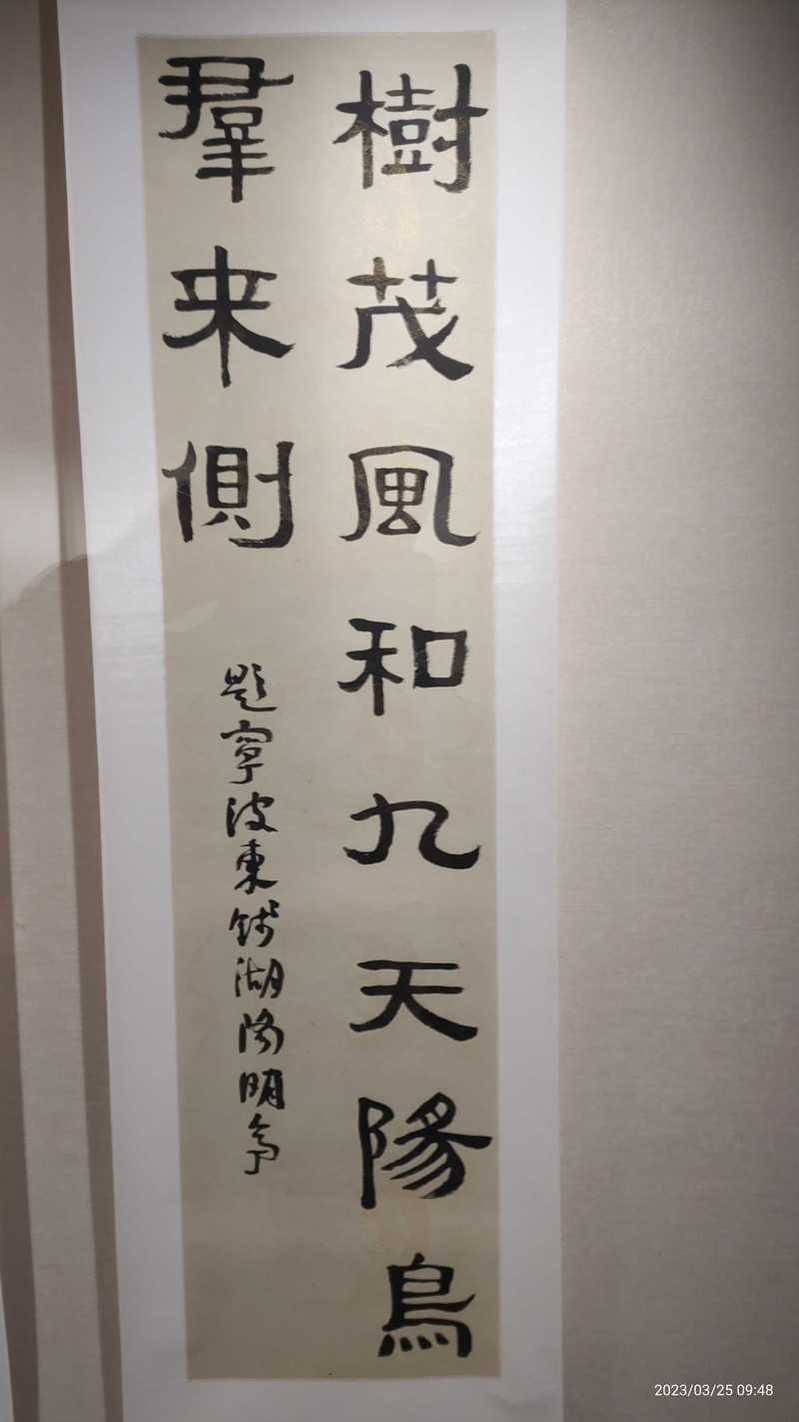 樹茂風和九天陽鳥
羣来側
题寧波東钱湖陽明亭
2023/03/25 09:48